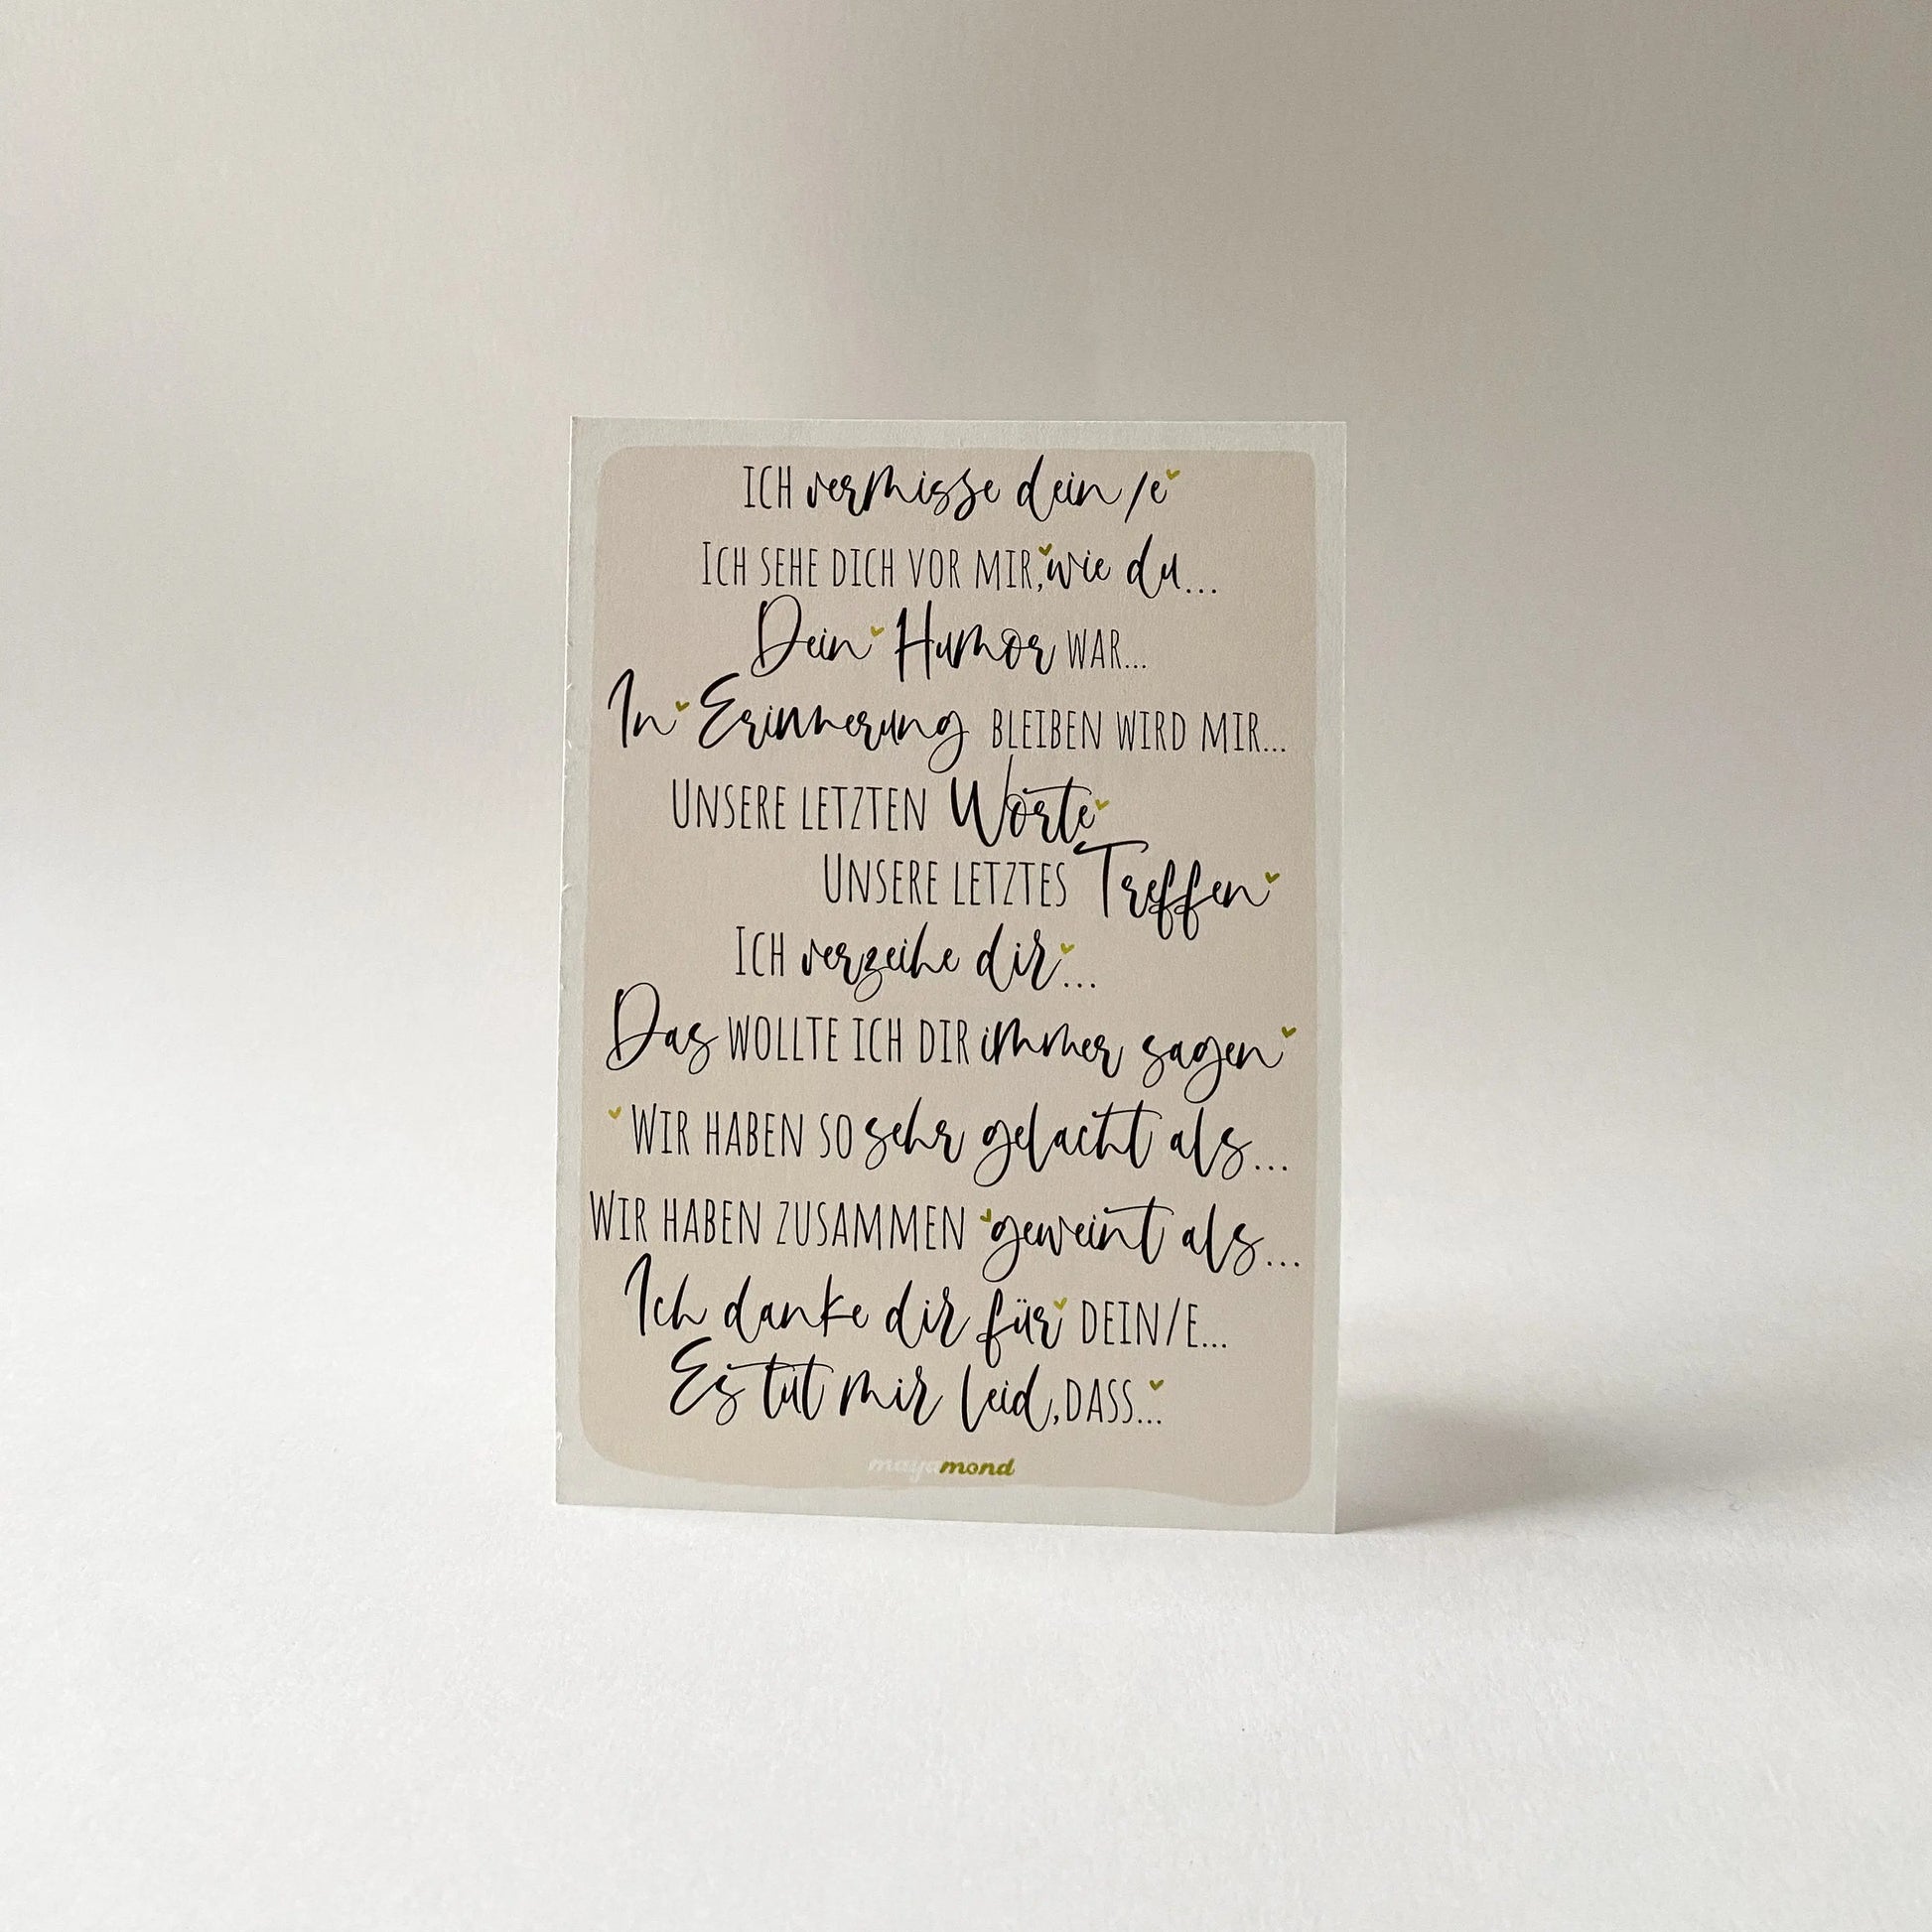 ICH vermisse dein/e
ICH SEHE DICH VOR MIR, wie du...
Dein Humor WAR...
In Erinnerung BLEIBEN WIRD MIR...
UNSERE LETZTEN Worte
UNSERE LETZTES Treffen
ICH verzeihe dir...
Das WOLLTE ICH DIR immer sagen
WIR HABEN SO sehr gelacht als...
WIR HABEN ZUSAMMEN geweint als...
Ich danke dir für DEIN/E...
Es tut mir leid, DASS...
mayamond